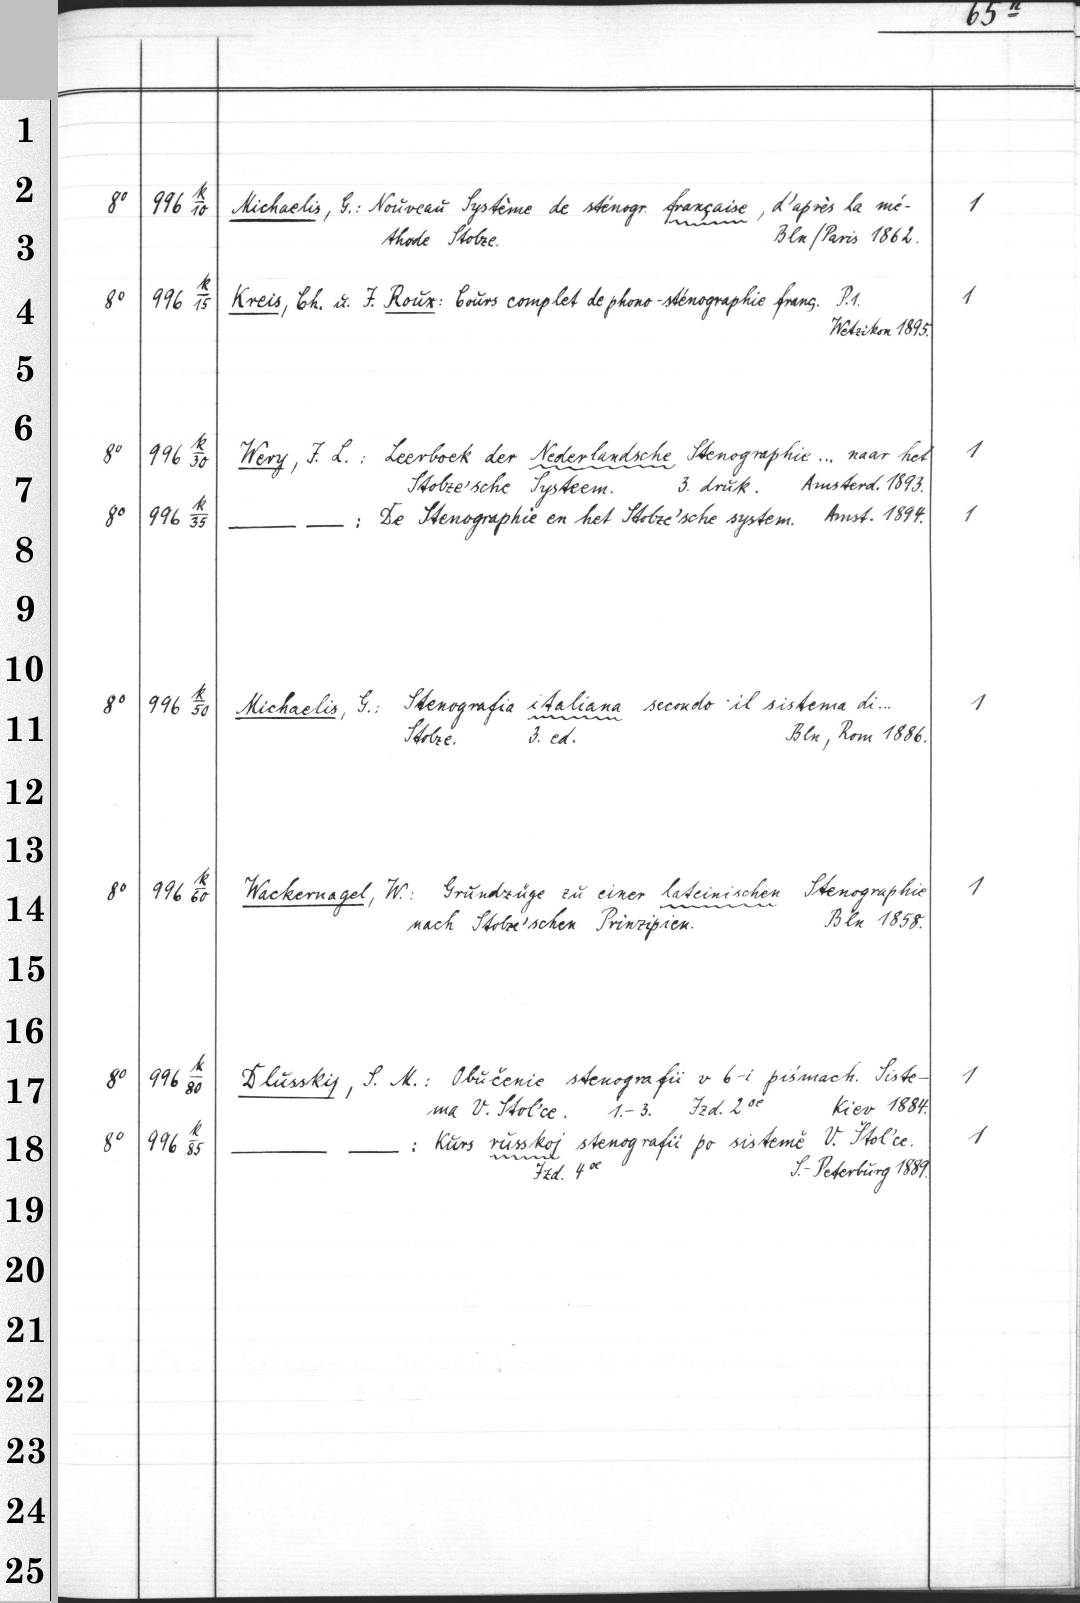 65n
1
2
8° 996 k/10 Michaelis, G.: Nouveau Système de sténogr. française, d'après la mé- 1
3
thode Stolze. Bln/Paris 1862.
4
8° 996 k/15 Kreis, Ch. u. J. Roux: Cours complet de phono-sténographie franç. P.1. 1
Wetzikon 1895.
5
6
8° 996 k/30 Wery, J. L.: Leerboek der Nederlandsche Stenographie ... naar het 1
7
Stolze'sche Systeem. 3. druk. Amsterd. 1893.
8° 996 k/35 — —: De Stenographie en het Stolze'sche system. Amst. 1894. 1
8
9
10
8° 996 k/50 Michaelis, G.: Stenografia italiana secondo il sistema di... 1
11
Stolze. 3. ed. Bln, Rom 1886.
12
13
8° 996 k/60 Wackernagel, W.: Grundzüge zu einer lateinischen Stenographie 1
14
nach Stolze'schen Prinzipien. Bln 1858.
15
16
8° 996 k/80 Dlusskij, S. M.: Obučenie stenografii v 6-i piśmach. Siste- 1
17
ma V. Štol'ce. 1.-3. Izd. 2oe Kiev 1884.
8° 996 k/85 — —: Kurs russkoj stenografii po sistemě V. Štol'ce. 1
18
Izd. 4oe S.-Peterburg 1889.
19
20
21
22
23
24
25